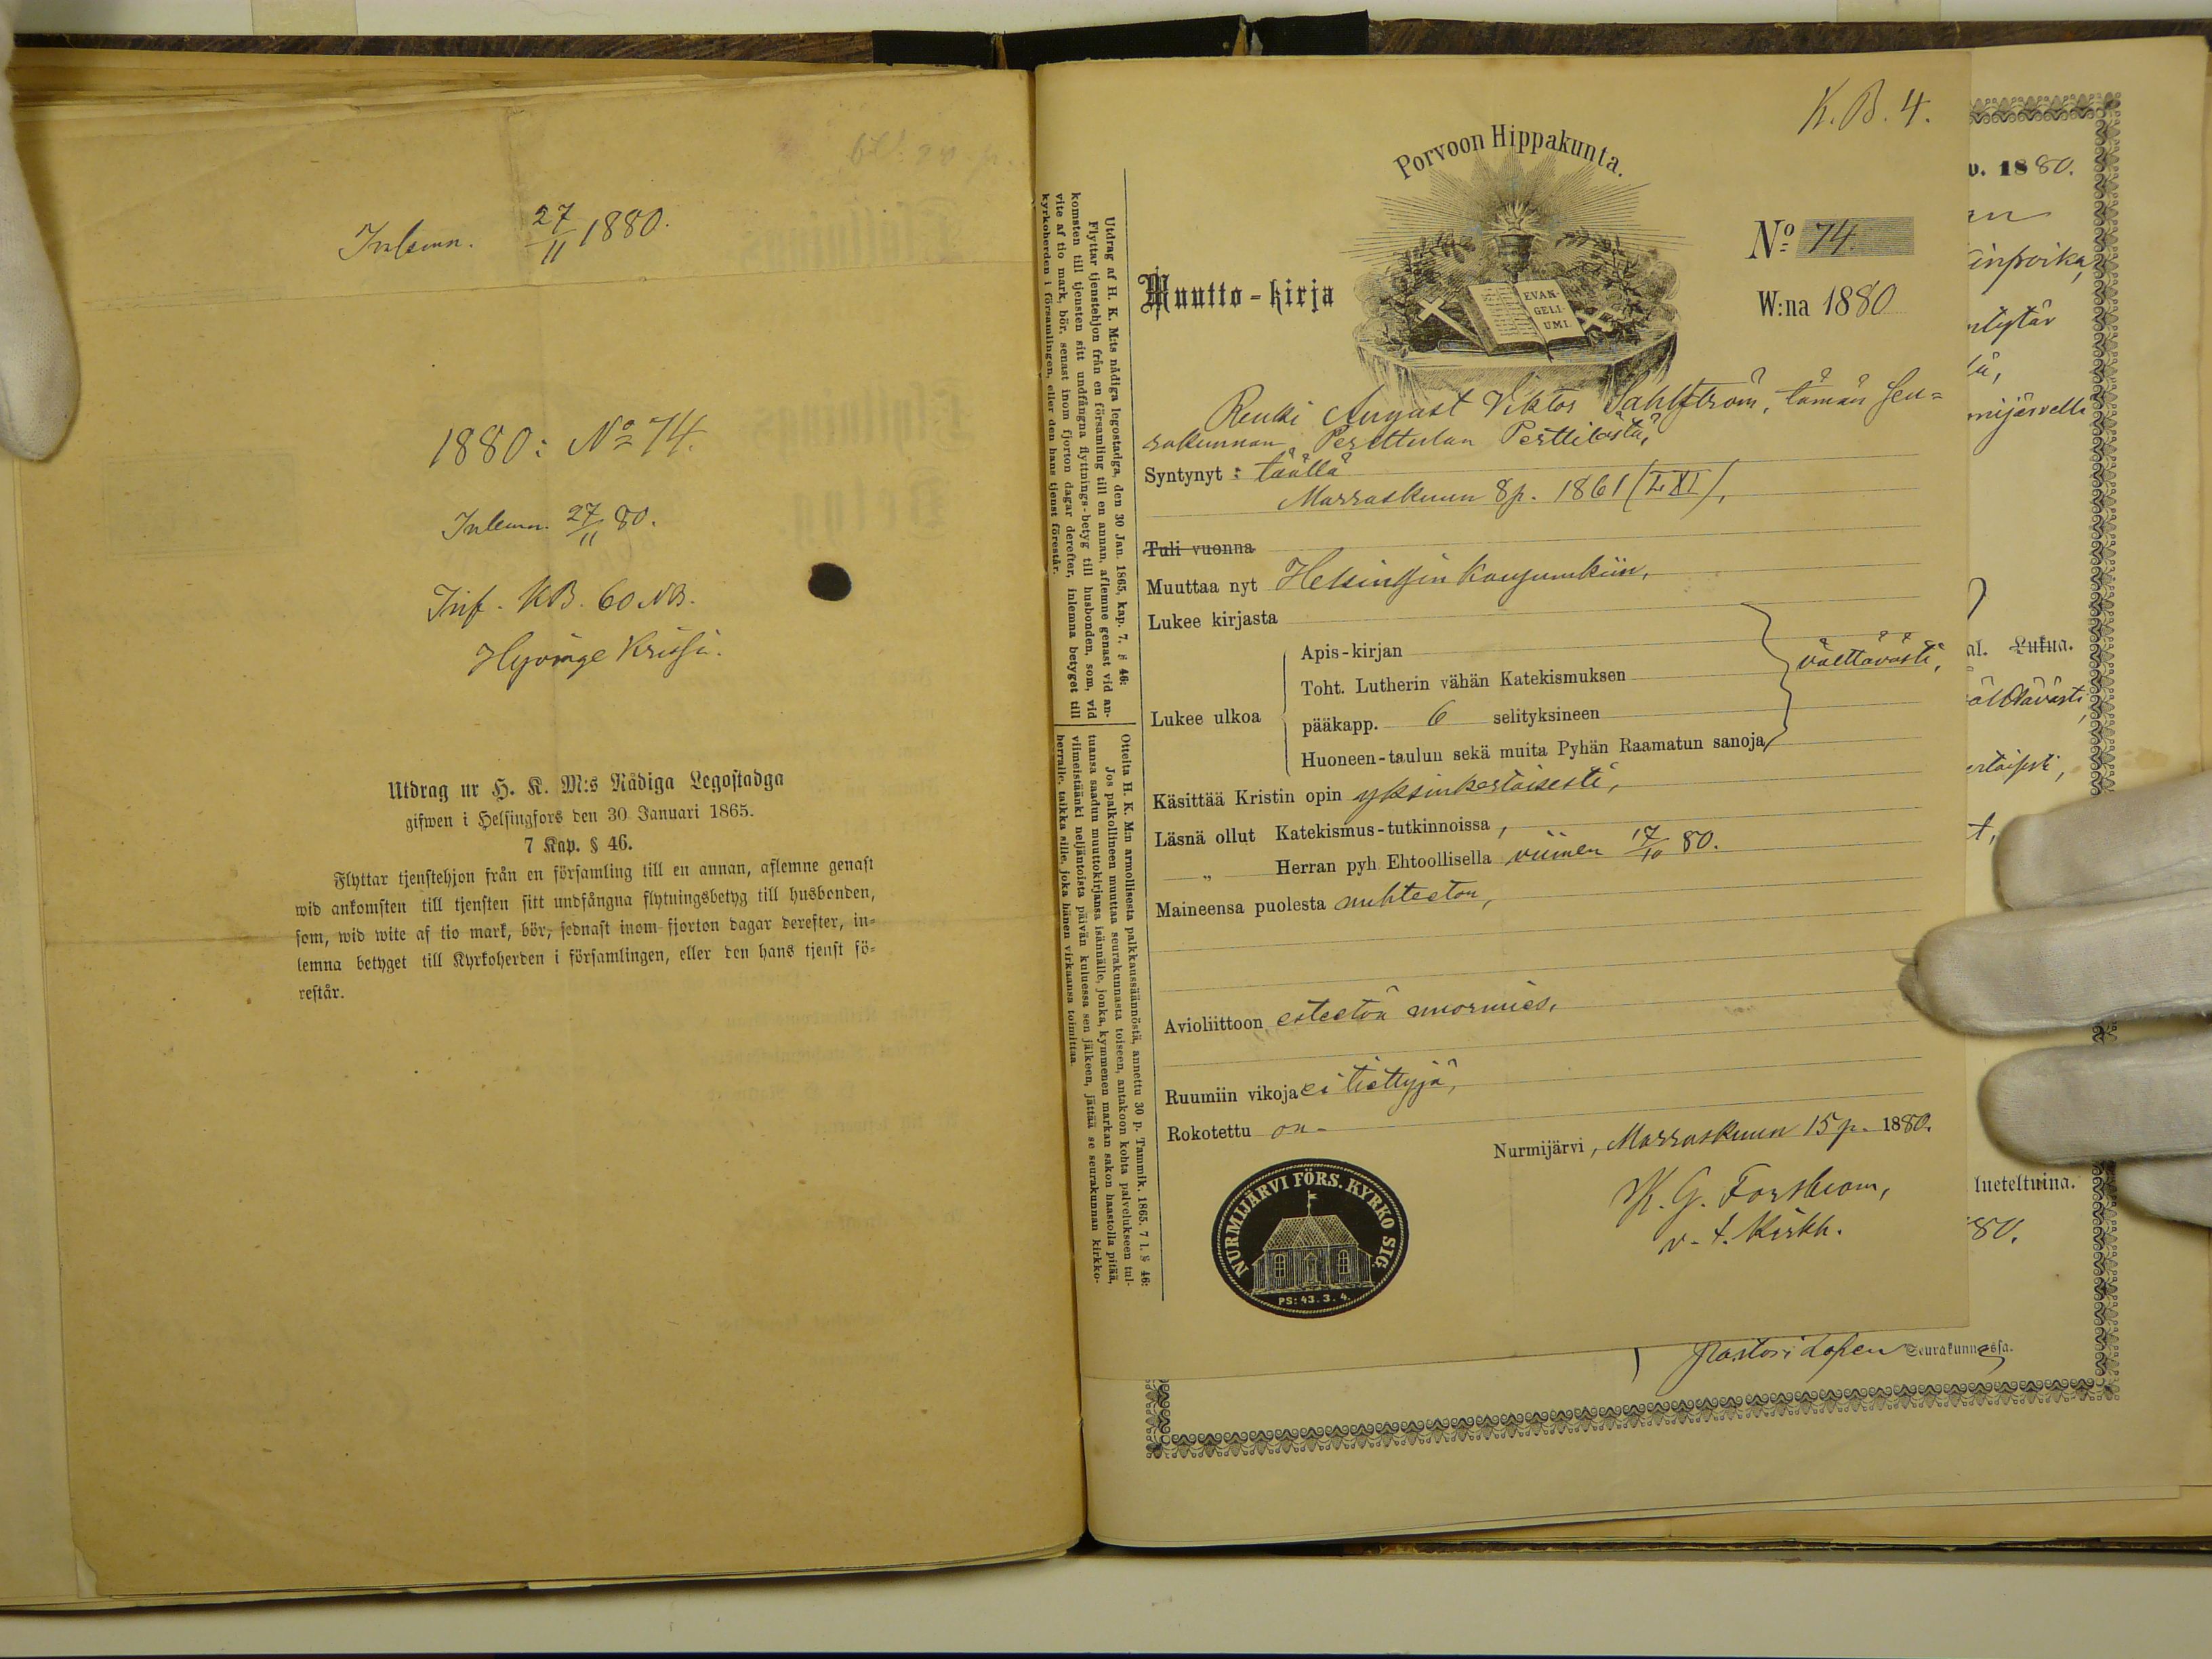 Inlemn. 27/11 1880.
1880: No 74.
Inlemn. 27/11 80.
Inf. KB. 60 NB.
Hyvinge
Utdrag ur H. K. M:s Nådiga Legostadga
gifwen i Helsingfors den 30 Januari 1865.
7 Kap. § 46.
Flyttar tjenstehjon från en församling till en annan, aflemne genast
wid ankomsten till tjensten sitt undfångna flytningsbetyg till husbonden,
som, wid wite af tio mark, bör, sednast inom fjorton dagar derefter, in=
lemna betyget till Kyrkoherden i församlingen, eller den hans tjenst fö=
restår.
Utdrag af H. K. M:ts nådiga legostadga, den 30 Jan. 1865, kap. 7. § 46:
Flyttar tjenstehjon från en församling till en annan, aflemne genast vid an-
komsten till tjensten sitt undfångna flyttnings-betyg till husbonden, som, vid
vite af tio mark, bör, senast inom fjorton dagar derefter, inlemna betyget till
kyrkoherden i församlingen, eller den hans tjenst förestår.
Otteita H. K. M:n armollisesta palkkaussäännöstä, annettu 30 p. Tammik. 1865. 7 l. § 46:
Jos palkollineen muuttaa seurakunnasta toiseen, antakoon kohta palvelukseen tul-
tuansa saadun muuttokirjansa isännälle, jonka, kymmenen markan sakon haastolla pitää,
viimeistäänki neljäntoista päivän kuluessa sen jälkeen, jättää se seurakunnan kirkko-
herralle, taikka sille, joka hänen virkaansa toimittaa.
K. B. 4.
Porvoon Hippakunta.
No 74.
Muutto-kirja
EVAN-
GELI-
UMI.
W:na 1880
Renki August Viktor Sahlström, tämän seu=
rakunnan Perttulan Perttilästä,
Syntynyt: täällä
Marraskuun 8 p. 1861 (LXI),
Tuli vuonna
Muuttaa nyt Helsingin kaupunkiin,
Lukee kirjasta
Apis-kirjan
välttävästi,
Toht. Lutherin vähän Katekismuksen
Lukee ulkoa
pääkapp. 6 selityksineen
Huoneen-taulun sekä muita Pyhän Raamatun sanoja
Käsittää Kristin opin yksinkertaisesti,
Läsnä ollut Katekismus-tutkinnoissa,
„ Herran pyh Ehtoollisella viimen 17/10 80.
Maineensa puolesta nuhteeton,
Avioliittoon esteetön nuormies.
Ruumiin vikoja ei tiettyjä,
Rokotettu on.
Nurmijärvi, Marraskuun 15 p. 1880.
K. G. Forsbrom,
v. t. Kirkh.
NURMIJÄRVI FÖRS. KYRKO SIG.
PS: 43. 3. 4.
v. 1880.
al. Lukua.
lueteltuina.
80.
Pastori Lopen Seurakunnassa.